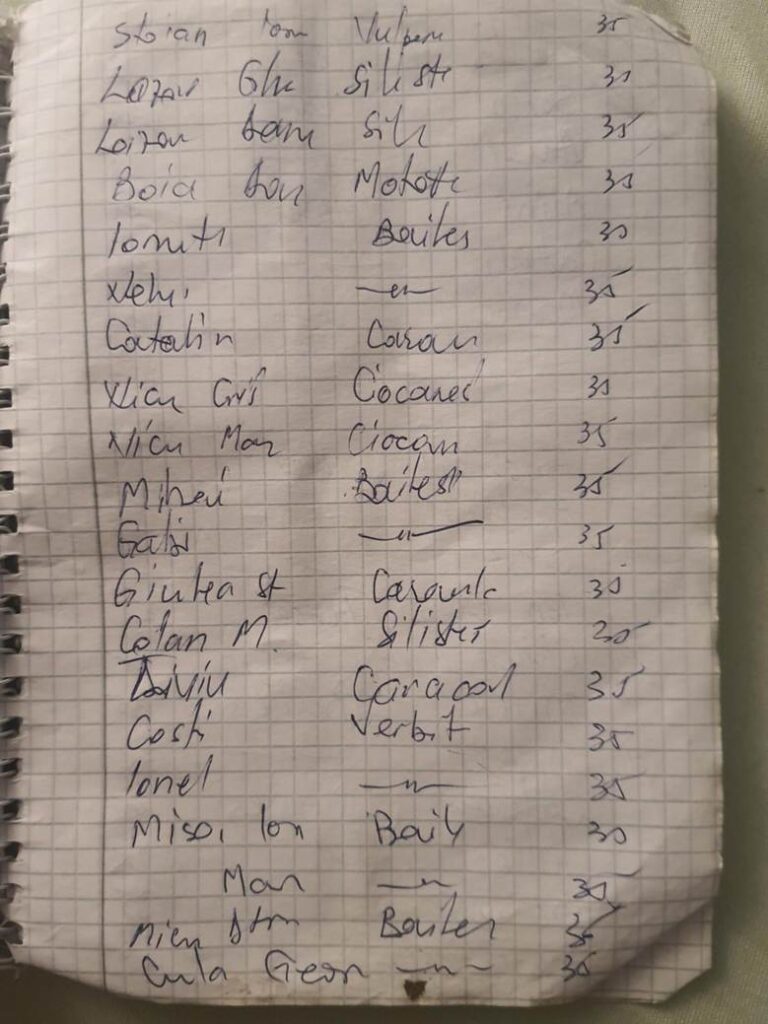 Stoian Ion Vulpeni 35
Lazar Ghe Siliste 30
Loizou Dani Sili 35
Boia Dan Motote 35
Ionuti Bailes 30
Neli —〃— 35
Catalin Caran 35
Nicu Cris Ciocanes 30
Nicu Mar Ciocan 35
Mihai Bailesti 35
Gabi —〃— 35
Giulea St Caraul 30
Colan M. Silister 35
Liviu Caracal 35
Costi Verbit 35
Ionel —〃— 35
Miso, Ion Bail 30
Man —〃— 35
Nicu Dtm Bailes 35
Cula Geor —〃— 35